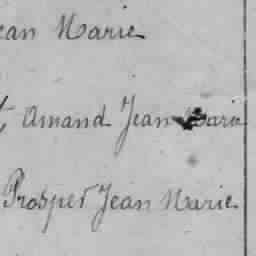 ean Marie
Amand Jean Marie
Prosper Jean Marie